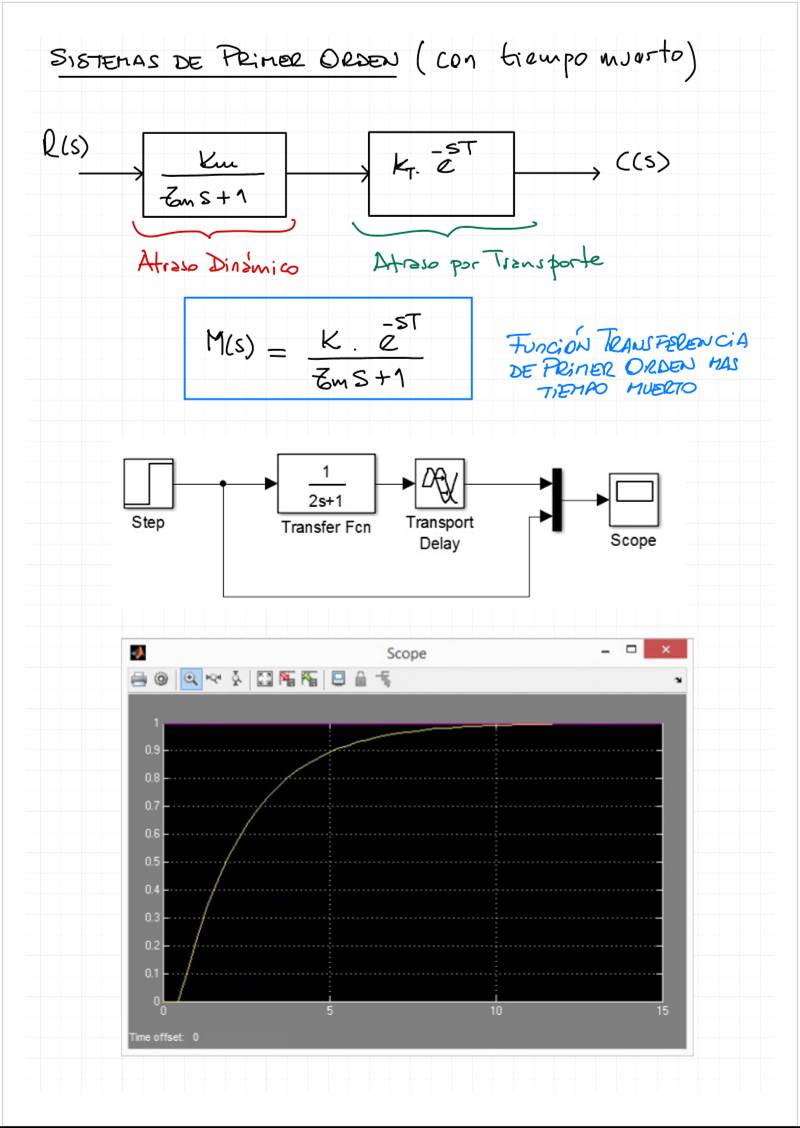 SISTEMAS DE PRIMER ORDEN (con tiempo muerto)
R(s)
Km
τm s+1
KT. e^-sT
C(s)
Atraso Dinámico
Atraso por Transporte
M(s) = K . e^-sT
τm s+1
FUNCIÓN TRANSFERENCIA
DE PRIMER ORDEN MAS
TIEMPO MUERTO
1
2s+1
Step
Transfer Fcn
Transport
Delay
Scope
Scope
1
0.9
0.8
0.7
0.6
0.5
0.4
0.3
0.2
0.1
0
0 5 10 15
Time offset: 0